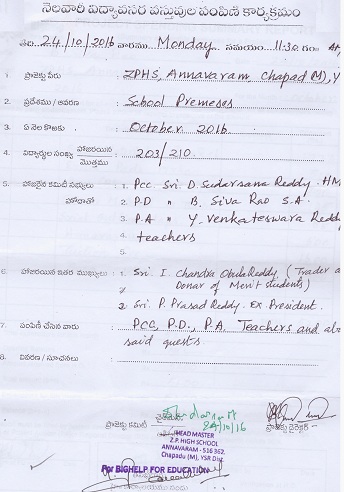 నెలవారి విద్యావసర వస్తువుల పంపిణీ కార్యక్రమం
తేది 24/10/2016 వారము Monday సమయం 11:30 గం॥
1. ప్రాజెక్టు పేరు : ZPHS, Annavaram Chapad M), Y
2. ప్రదేశము / ఆవరణ : School Premeses
3. ఏ నెల కొఱకు : October 2016
4. విద్యార్థుల సంఖ్య హాజరయిన / మొత్తము : 203/210
5. హాజరైన కమిటీ సభ్యులు : 1. PCC Sri. D. Sudarsana Reddy. HM
హోదాతో 2. P.D " B. Siva Rao S.A.
3. P.A " Y. Venkateswara Reddy
4. teachers
5.
6. హాజరయిన ఇతర ముఖ్యులు : 1. Sri I. Chandra Obula Reddy, (Trader a
Donar of Merit students)
2. Sri P. Prasad Reddy. Ex. President.
7. పంపిణీ చేసిన వారు : PCC, P.D., P.A. Teachers and abo
said guests.
8. వివరణ / సూచనలు :
ప్రాజెక్టు కమిటీ చైర్మెన్ 24/10/16 ప్రాజెక్టు డైరెక్టర్
HEAD MASTER
Z.P. HIGH SCHOOL
ANNAVARAM - 516 362.
Chapadu (M), YSR Dist.
For BIGHELP FOR EDUCATION